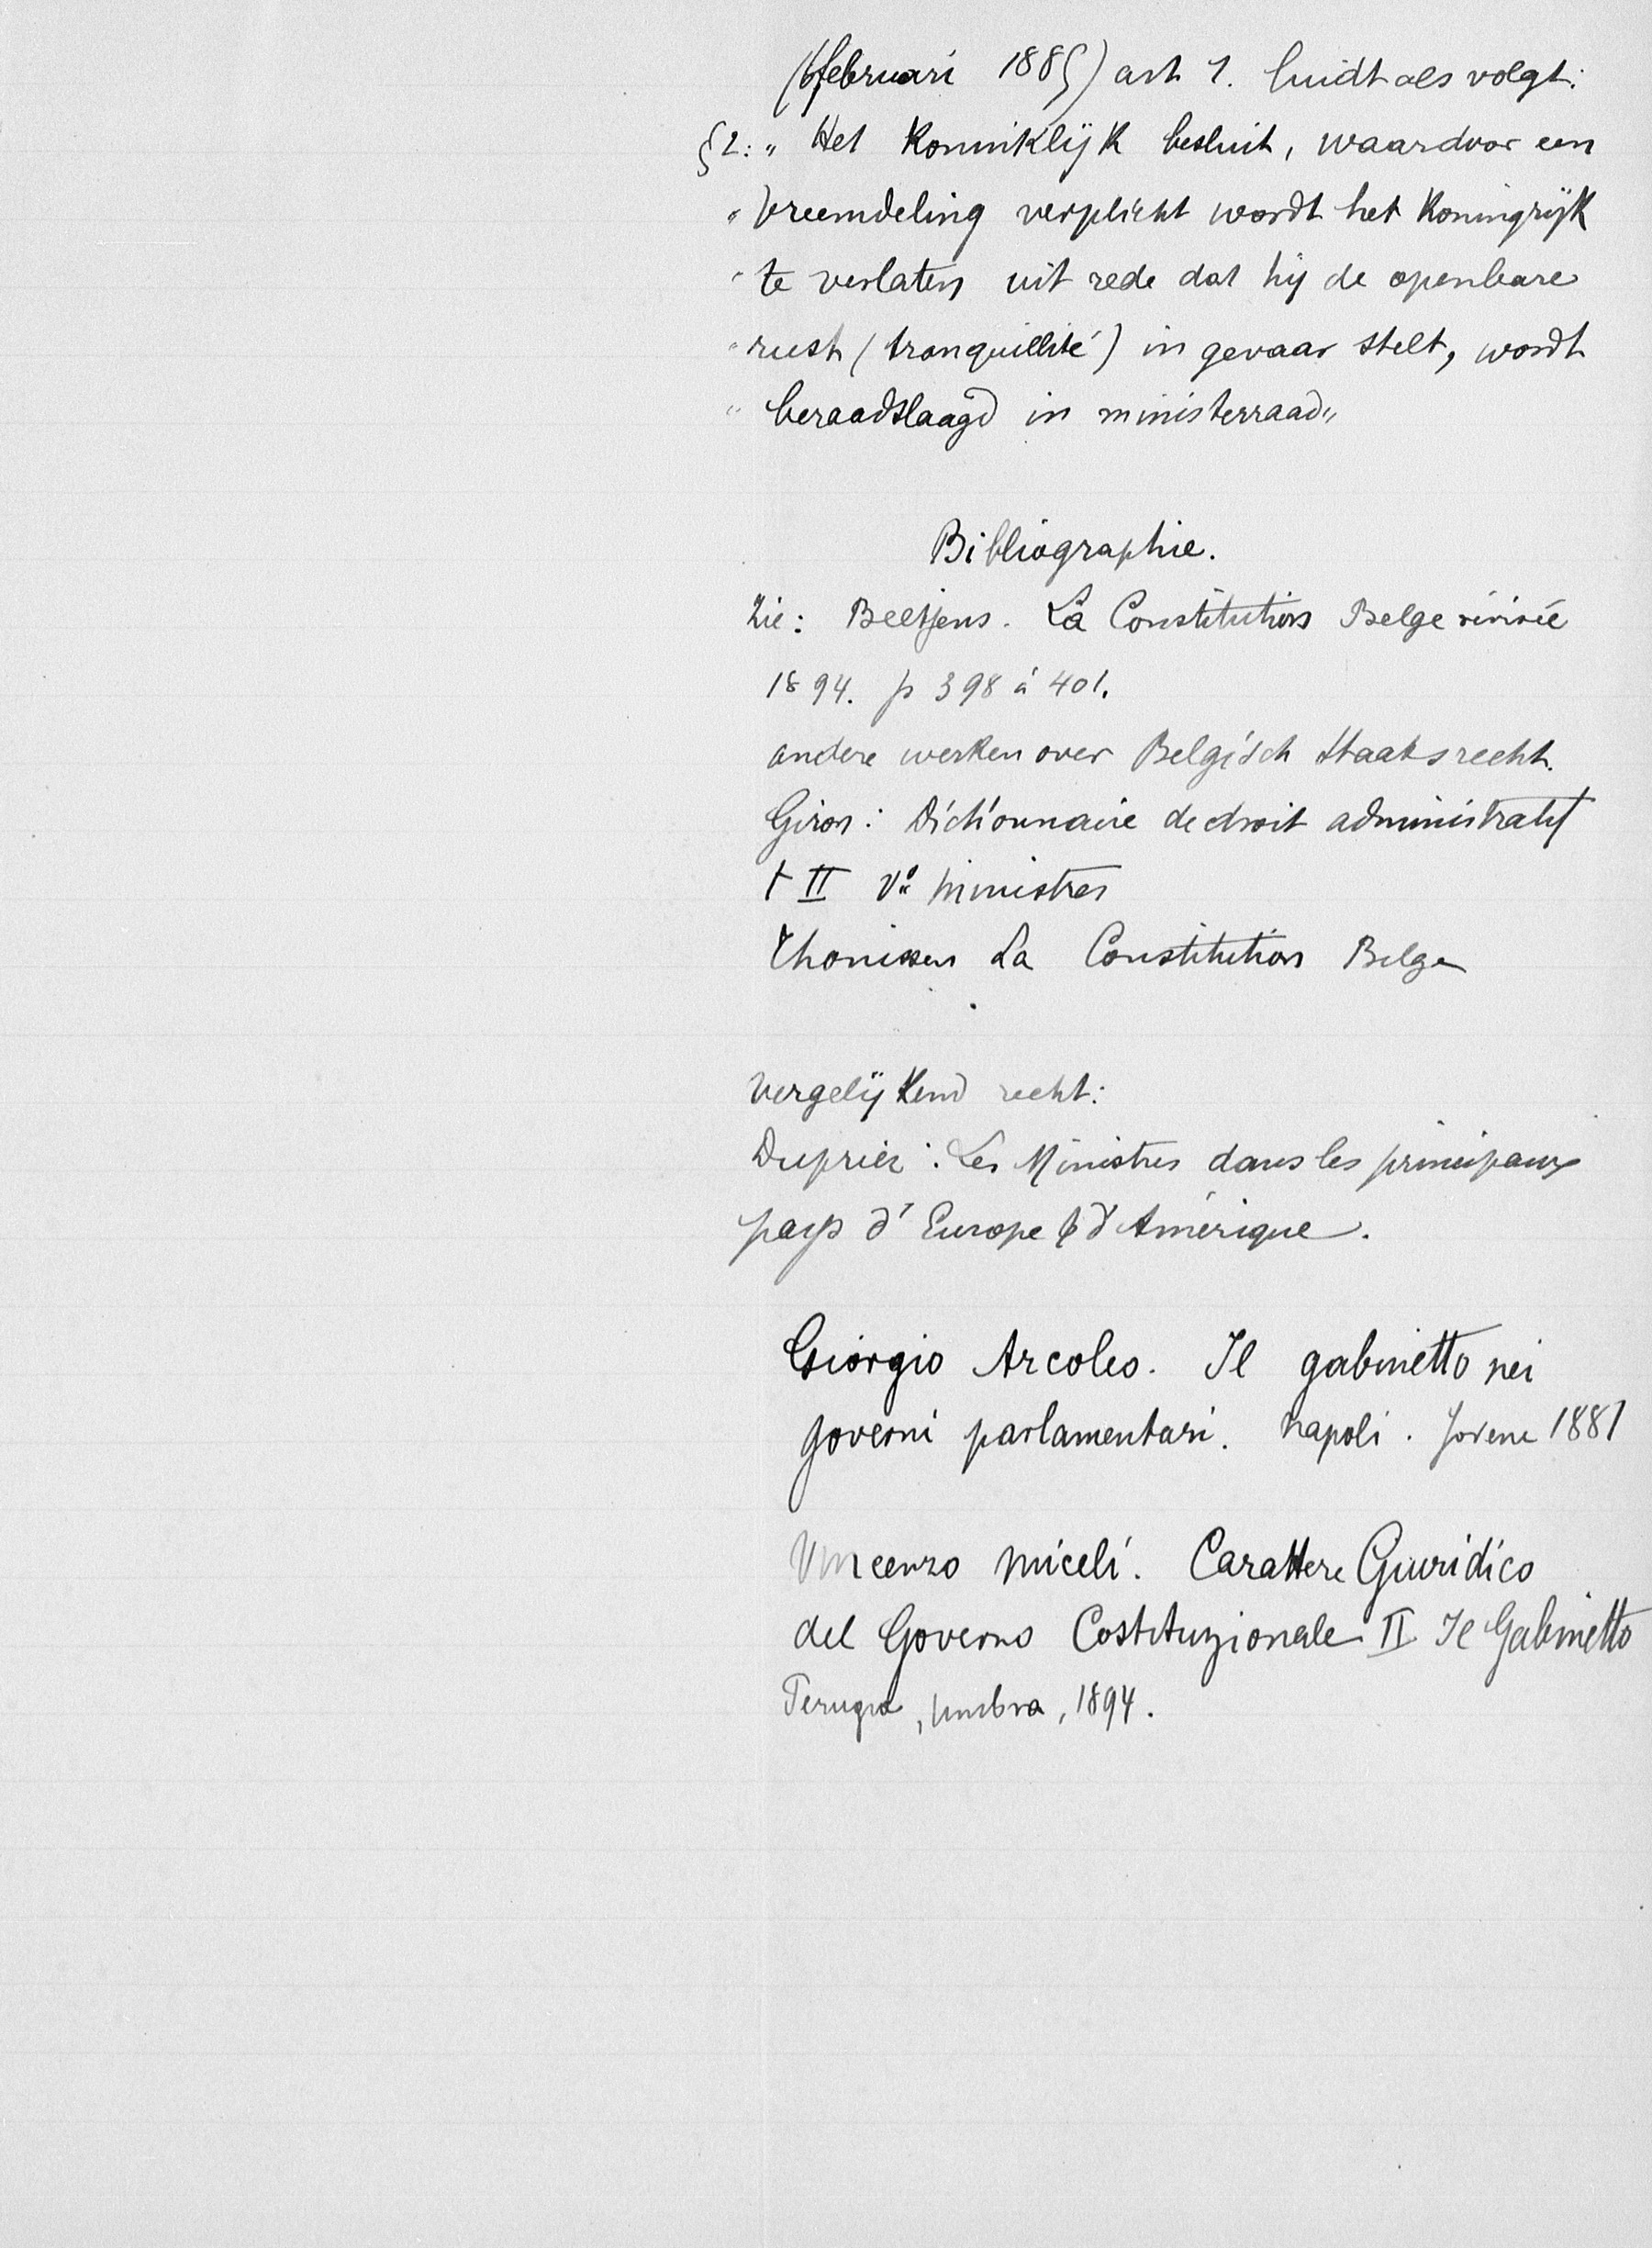 (6 februari 1885) art 1. luidt als volgt:
§2: „ Het Koninklijk besluit, waardoor een
„ vreemdeling verplicht wordt het Koningrijk
„ te verlaten uit rede dat hij de openbare
„ rust (tranquillité) in gevaar stelt, wordt
„ beraadslaagd in ministerraad „
Bibliographie.
Zie: Beltjens. La Constitution Belge révisée
1894. p 398 à 401.
andere werken over Belgisch Staatsrecht.
Giron: Dictionnaire de droit administratif
t II V° Ministres
Thonissen La Constitution Belge
Vergelijkend recht:
Dupriez: Les Ministres dans les principaux
pays d'Europe & d'Amérique.
Giorgio Arcoleo. Il gabinetto nei
governi parlamentari. Napoli. Jovene 1881
Vincenzo Miceli. Carattere Giuridico
del Governo Costituzionale II Il Gabinetto
Perugia, Umbra, 1894.